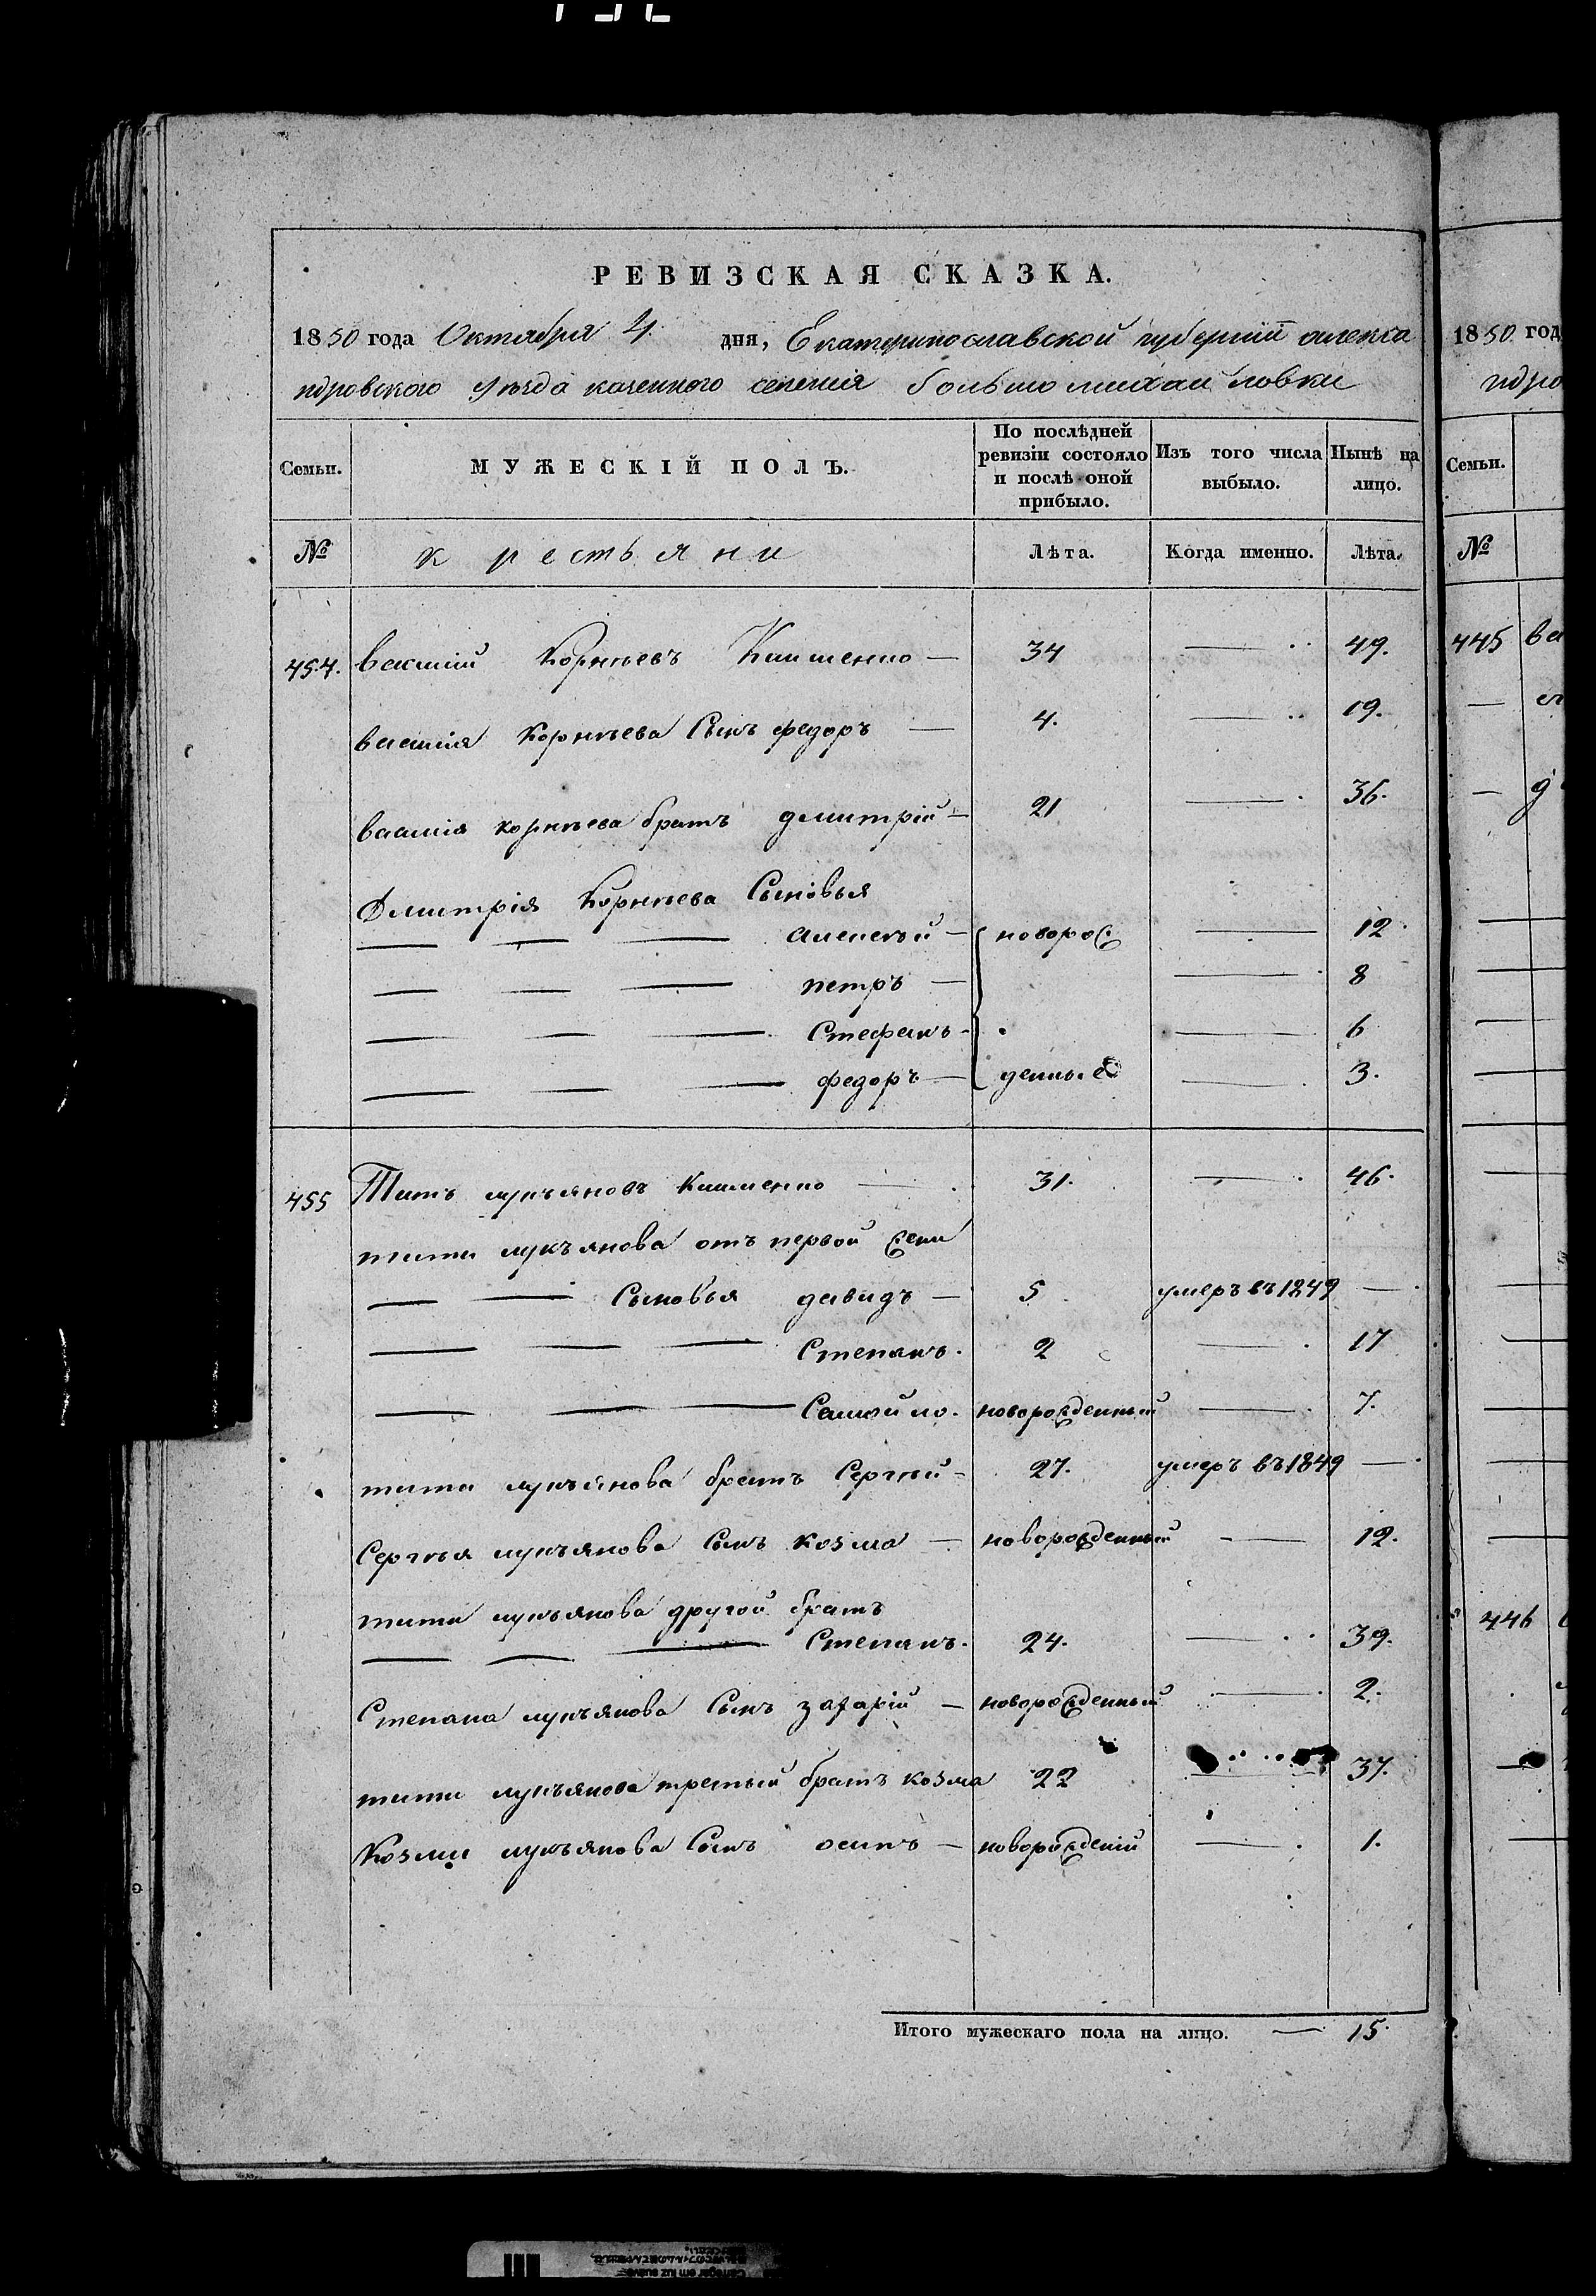 РЕВИЗСКАЯ СКАЗКА.
1850 года Октября 4 дня, Екатеринославской губернии алекса
ндровского уѣзда казенного селения большо михайловки
Семьи. МУЖЕСКІЙ ПОЛЪ. По послѣдней ревизіи состояло и послѣ оной прибыло. Изъ того числа выбыло. Нынѣ на лицо.
№ крестьяни Лѣта. Когда именно. Лѣта.
454. василій Корнѣевъ Клименко — 34 — 49.
василія Корнѣева Сынъ федоръ — 4. — 19.
василія корнѣева братъ дмитрій — 21 — 36.
Дмитрія Корнѣева Сыновья
— — — алексѣй — новорож — 12
— — — петръ — — 8
— — — Стефанъ — — 6
— — — федоръ — денные — 3.
455 Титъ лукъяновъ Клименко — 31. — 46.
тита лукъянова отъ первой жены
— — Сыновья давидъ — 5 умеръ въ 1849 —
— — — Степанъ. 2 — 17
— — — Самойло. новорожденный — 7.
тита лукъянова братъ Сергѣй — 27. умеръ въ 1849 —
Сергѣя лукъянова Сынъ козма — новорожденный — 12.
тита лукъянова другой братъ
— — — Степанъ. 24. — 39.
Степана лукъянова Сынъ захарій — новорожденный — 2.
тита лукъянова третий братъ козма 22 — 37.
Козми лукъянова Сынъ осипъ — новорожденій — 1.
Итого мужескаго пола на лицо. — 15.
1850 год
ндро
Семьи.
№
445 ва
446